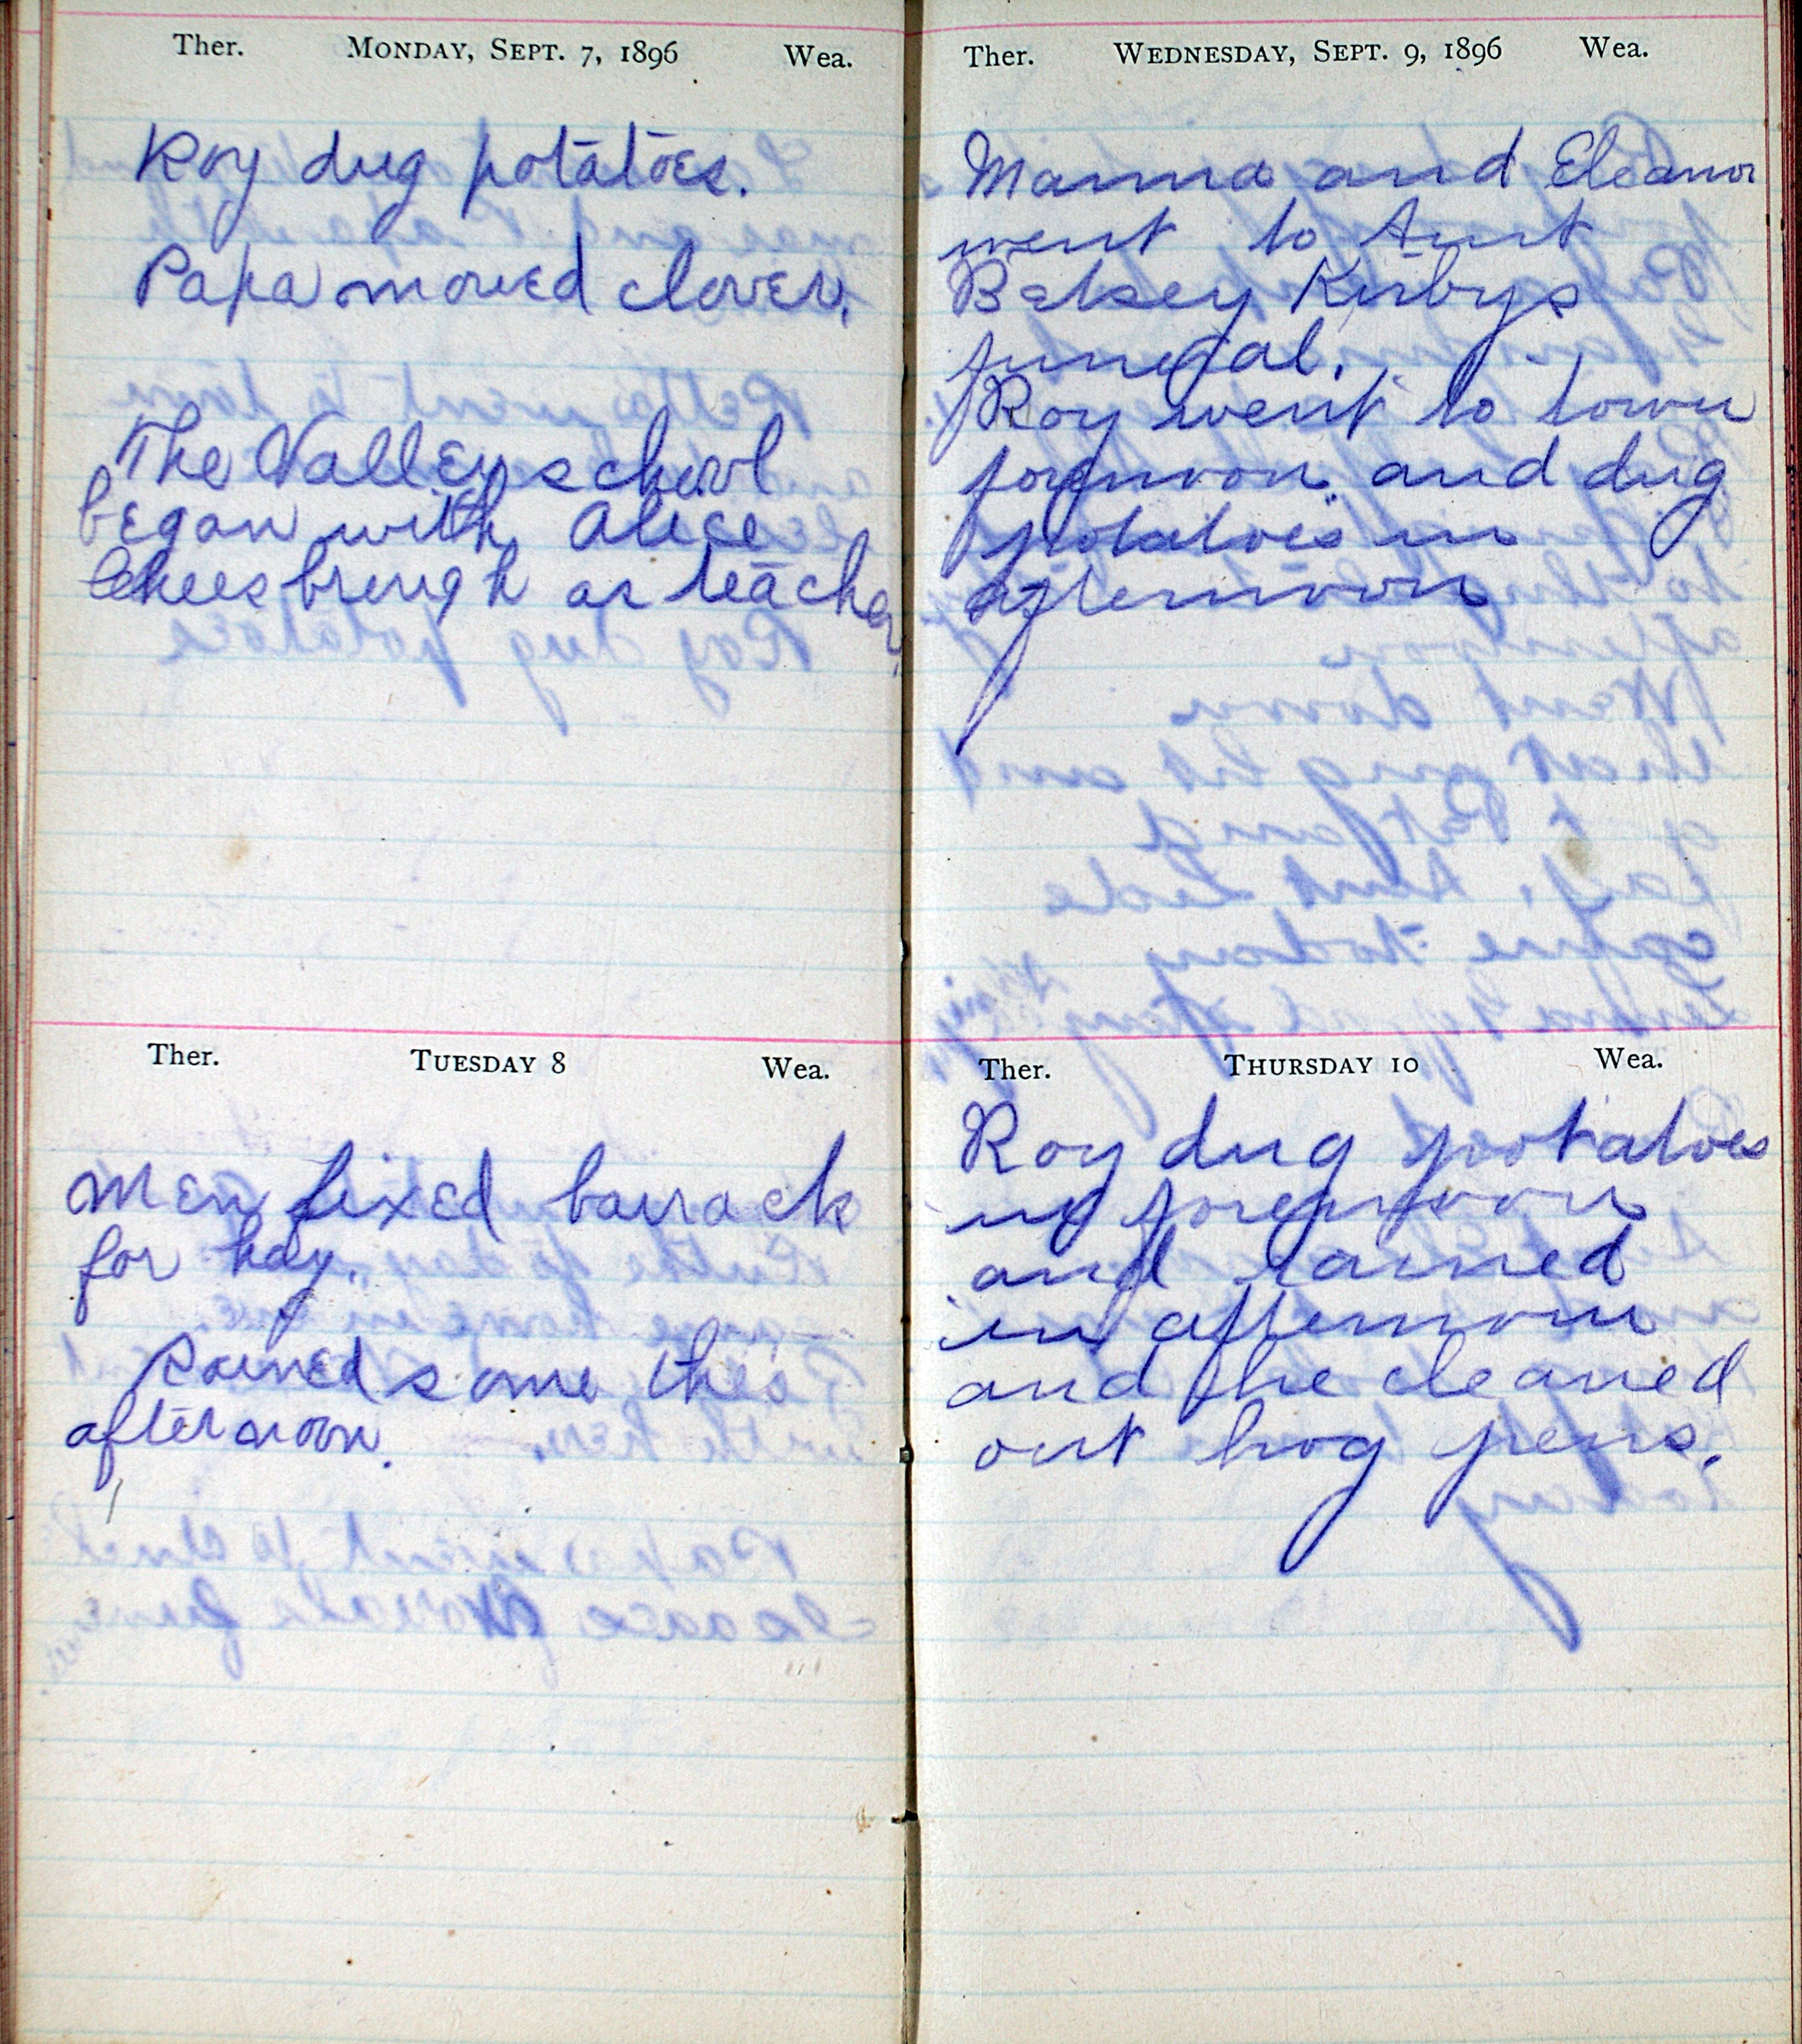 Ther. Monday, Sept. 7, 1896 Wea.
Roy dug potatoes.
Papa mowed clover.
The Valley school
began with Alice
Cheesbrough as teacher.
Ther. Tuesday 8 Wea.
Men fixed barrack
for hay.
Rained some this
afternoon.
Ther. Wednesday, Sept. 9, 1896 Wea.
Mamma and Eleanor
went to Aunt
Betsey Kirbys
funeral.
Roy went to town
forenoon and dug
potatoes in
afternoon
Ther. Thursday 10 Wea.
Roy dug potatoes
in forenoon
and rained
in afternoon
and he cleaned
out hog pens.